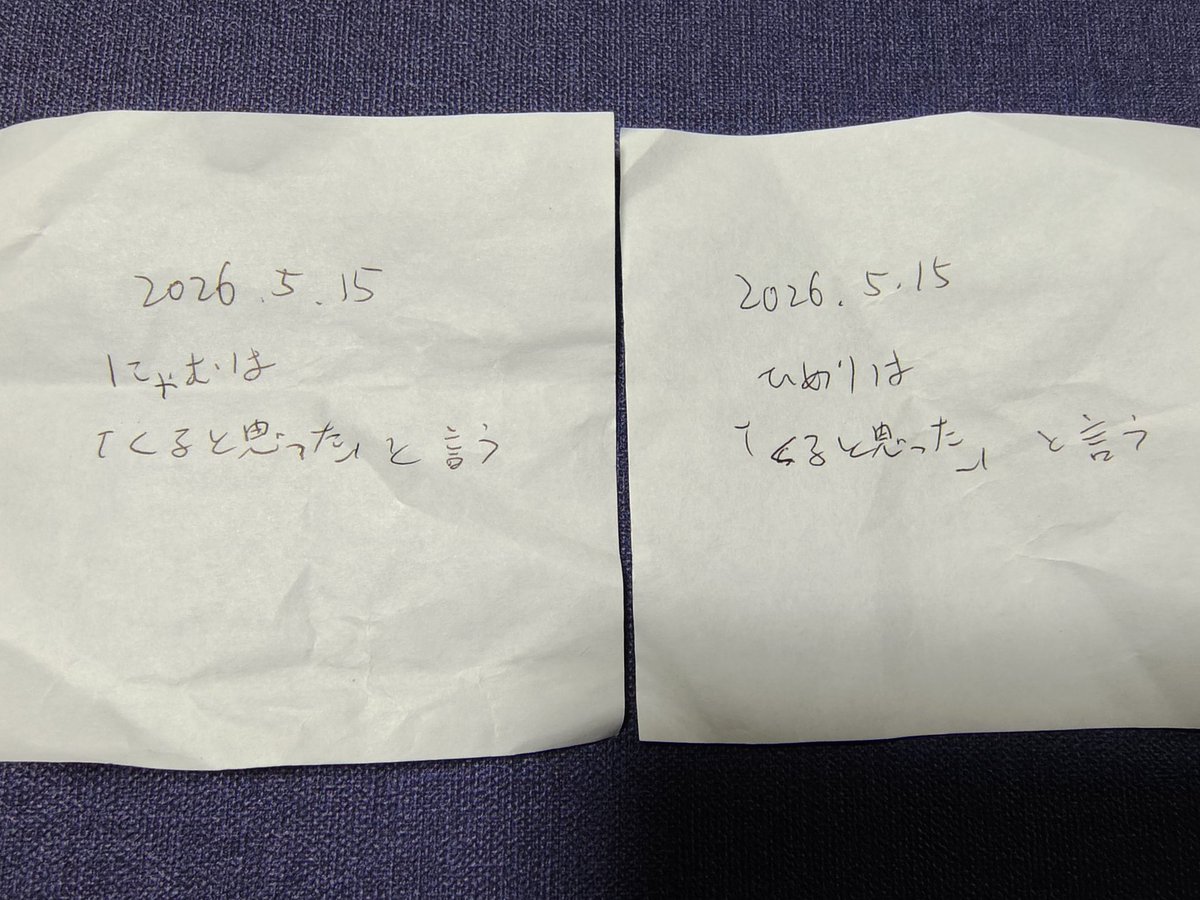 2026.5.15
にゃむは
「くると思った」と言う
2026.5.15
ひめりは
「くると思った」と言う